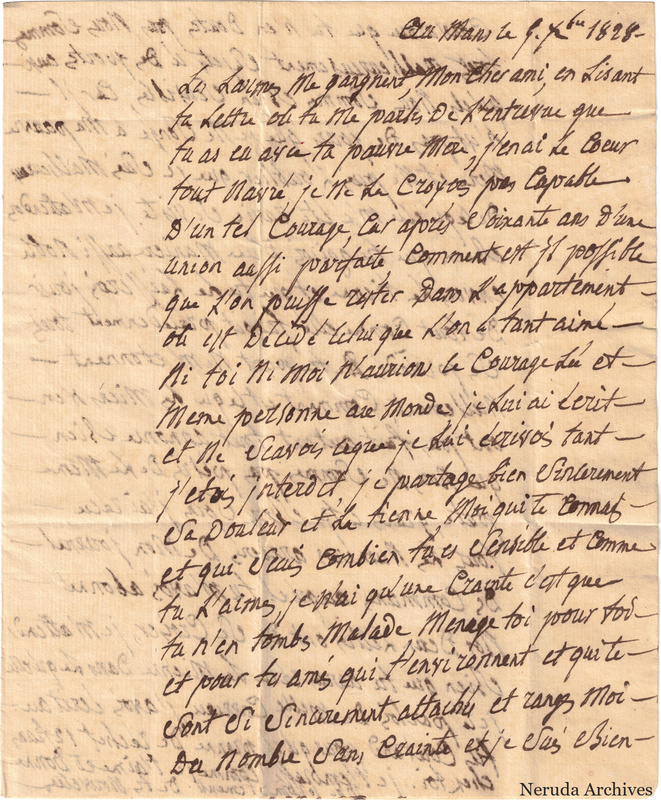 Au Mans le 9. Xbre 1828-
Les Larmes Me gangnent, Mon Cher ami, en Lisant
ta Lettre où tu Me parles De L'entrevue que
tu as eu avec ta pauvre Mere, j'en ai Le Coeur
tout Navré, je Ne La Croyois pas Capable
D'un tel Courage, Car après Soixante ans D'une
union aussi parfaite, Comment est jl possible
que L'on puisse rester Dans L'appartement
où est Décédé Celui que L'on a tant aimé
Ni toi Ni Moi N'aurions Ce Courage Là et
Meme personne au Monde, je Lui ai Ecrit
et Ne Scavois ceque je Lui Ecrivois tant
j'etois interdit, je partage bien Sincerement
Sa Douleur et La tienne, Moi qui te Connais
et qui Scais Combien tu es Sensible et Comme
tu L'aimes, je N'ai qu'une Crainte c'est que
tu N'en tombes Malade, Menage toi pour toi
et pour tes amis qui t'environnent et qui te
Sont Si Sincerement attachés et ranges Moi
Du Nombre Sans Crainte et je Suis Bien
Neruda Archives